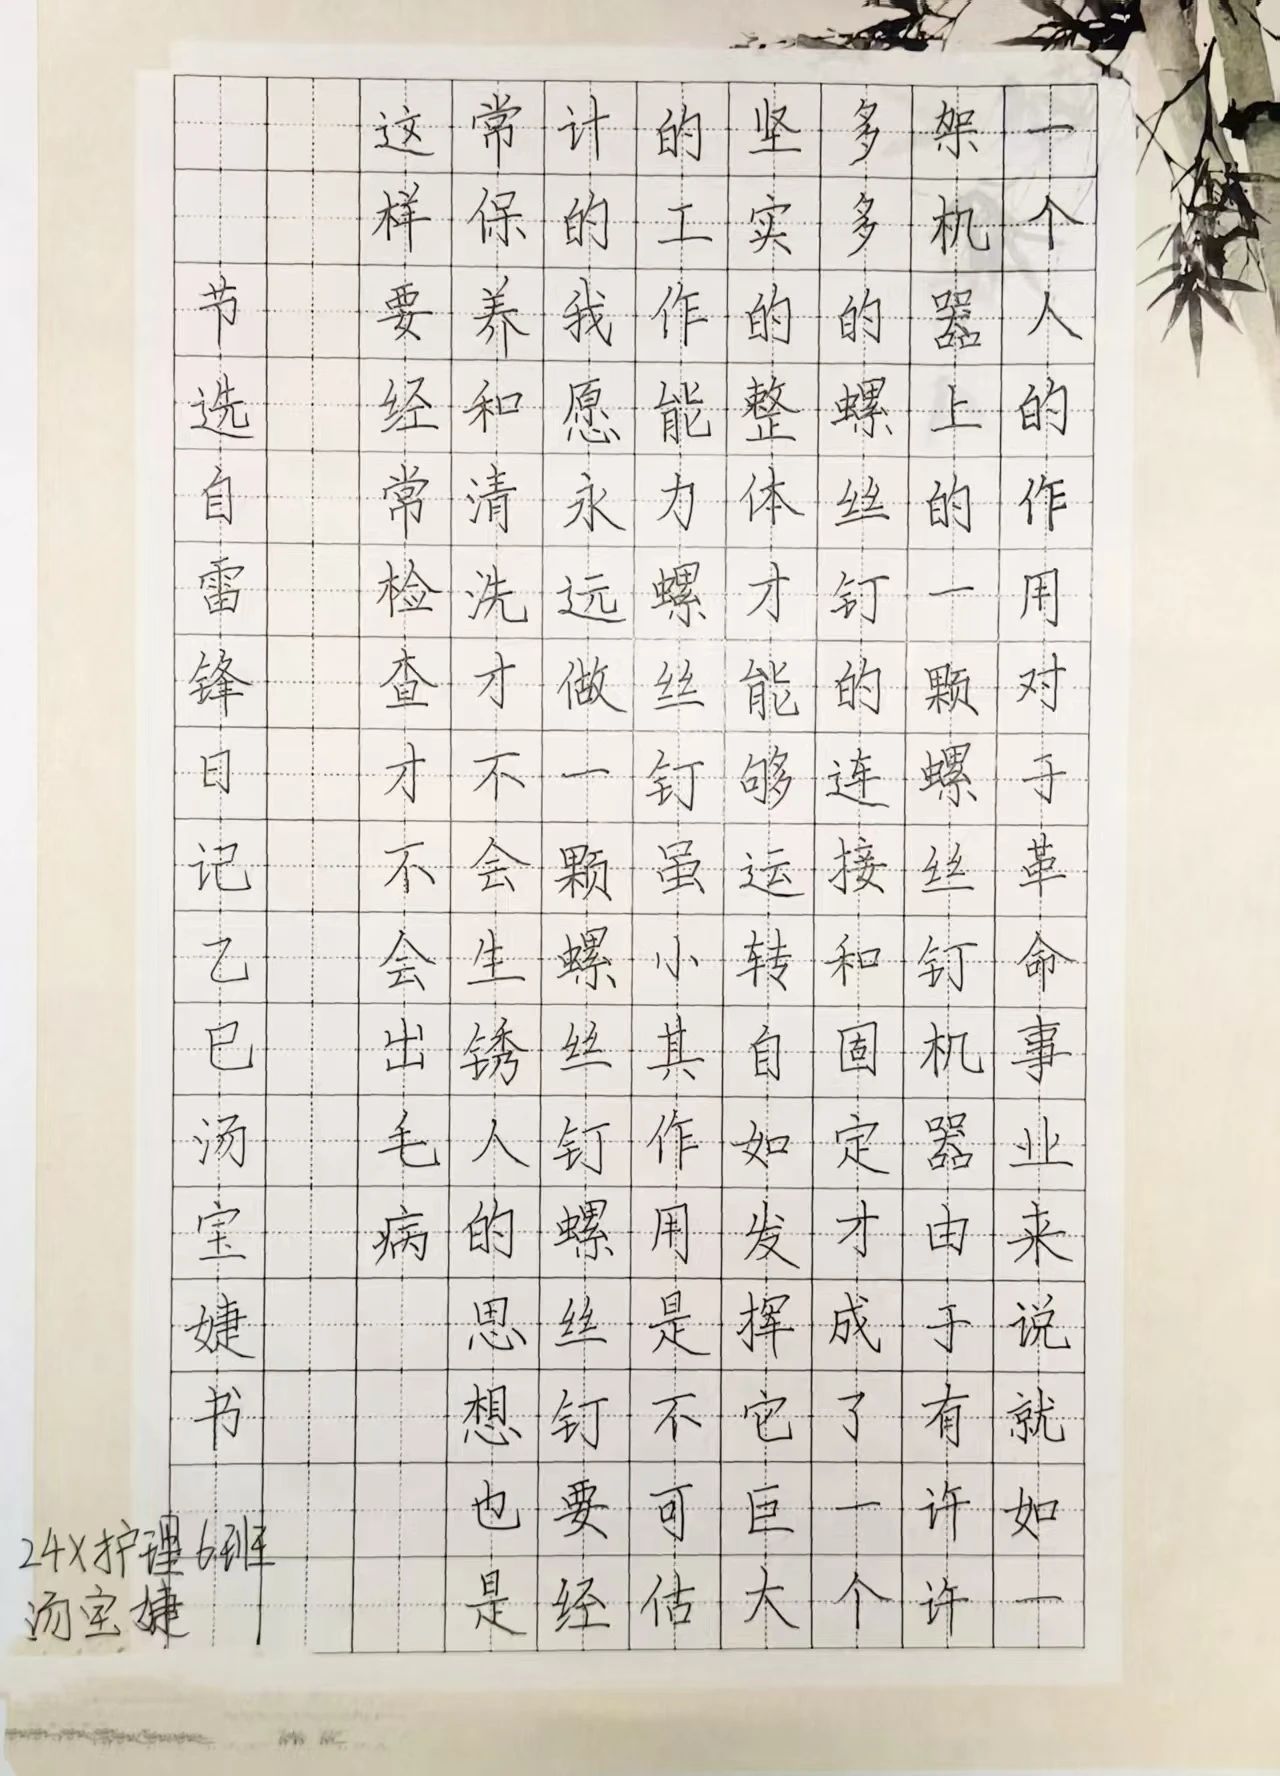 一个人的作用对于革命事业来说就如一
架机器上的一颗螺丝钉机器由于有许许
多多的螺丝钉的连接和固定才成了一个
坚实的整体才能够运转自如发挥它巨大
的工作能力螺丝钉虽小其作用是不可估
计的我愿永远做一颗螺丝钉螺丝钉要经
常保养和清洗才不会生锈人的思想也是
这样要经常检查才不会出毛病
节选自雷锋日记乙巳汤宝婕书
24X护理6班
汤宝婕